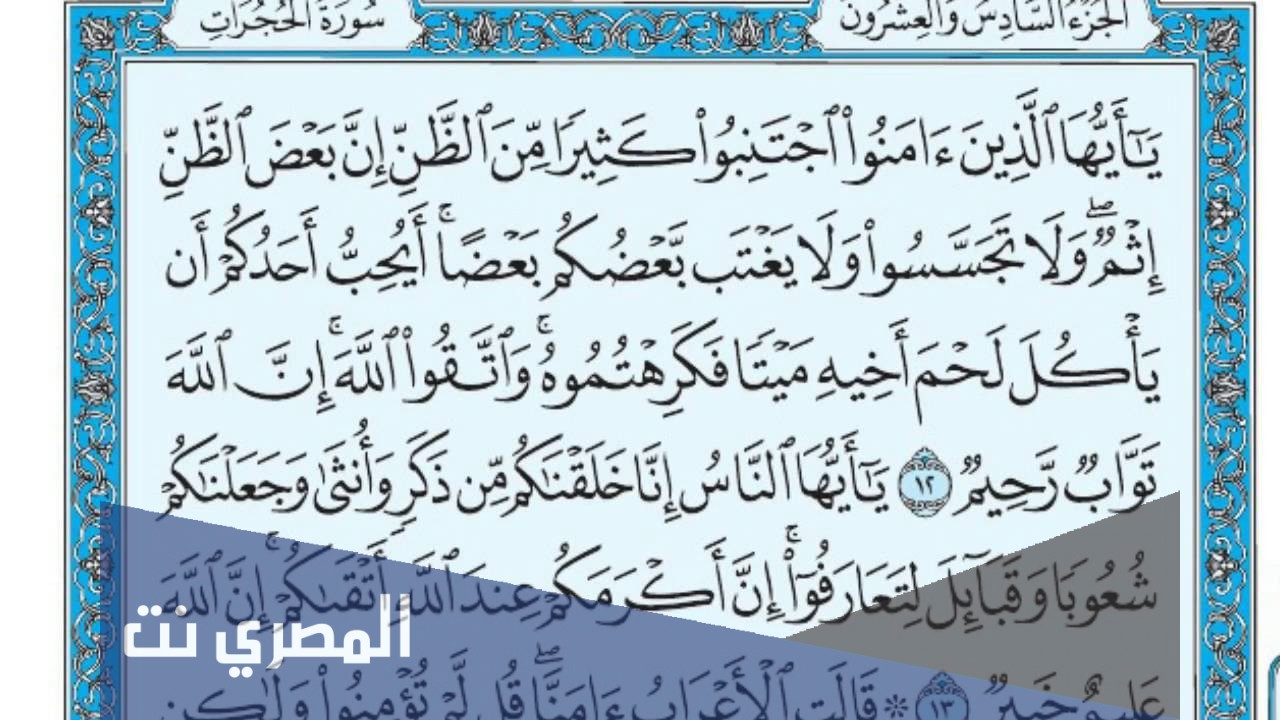 الجُزْءُ السَّادِسُ وَالعِشْرُونَ
سُورَةُ الحُجُرَاتِ
يَـٰٓأَيُّهَا ٱلَّذِينَ ءَامَنُوا۟ ٱجْتَنِبُوا۟ كَثِيرًا مِّنَ ٱلظَّنِّ إِنَّ بَعْضَ ٱلظَّنِّ
إِثْمٌ ۖ وَلَا تَجَسَّسُوا۟ وَلَا يَغْتَب بَّعْضُكُم بَعْضًا ۚ أَيُحِبُّ أَحَدُكُمْ أَن
يَأْكُلَ لَحْمَ أَخِيهِ مَيْتًا فَكَرِهْتُمُوهُ ۚ وَٱتَّقُوا۟ ٱللَّهَ ۚ إِنَّ ٱللَّهَ
تَوَّابٌ رَّحِيمٌ ١٢ يَـٰٓأَيُّهَا ٱلنَّاسُ إِنَّا خَلَقْنَـٰكُم مِّن ذَكَرٍ وَأُنثَىٰ وَجَعَلْنَـٰكُمْ
شُعُوبًا وَقَبَآئِلَ لِتَعَارَفُوٓا۟ ۚ إِنَّ أَكْرَمَكُمْ عِندَ ٱللَّهِ أَتْقَىٰكُمْ ۚ إِنَّ ٱللَّهَ
المصري نت
عَلِيمٌ خَبِيرٌ ١٣ ۞ قَالَتِ ٱلْأَعْرَابُ ءَامَنَّا ۖ قُل لَّمْ تُؤْمِنُوا۟ وَلَـٰكِن